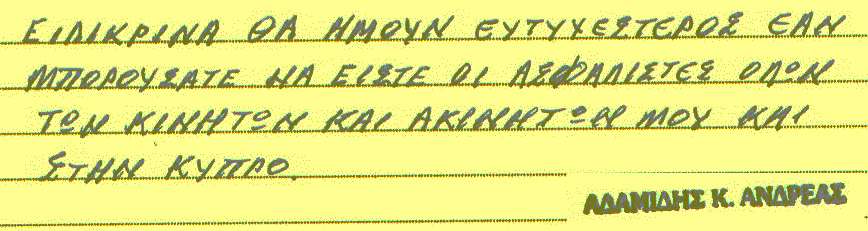 ΕΙΛΙΚΡΙΝΑ ΘΑ ΗΜΟΥΝ ΕΥΤΥΧΕΣΤΕΡΟΣ ΕΑΝ
ΜΠΟΡΟΥΣΑΤΕ ΝΑ ΕΙΣΤΕ ΟΙ ΑΣΦΑΛΙΣΤΕΣ ΟΛΩΝ
ΤΩΝ ΚΙΝΗΤΩΝ ΚΑΙ ΑΚΙΝΗΤΩΝ ΜΟΥ ΚΑΙ
ΣΤΗΝ ΚΥΠΡΟ.
ΑΔΑΜΙΔΗΣ Κ. ΑΝΔΡΕΑΣ